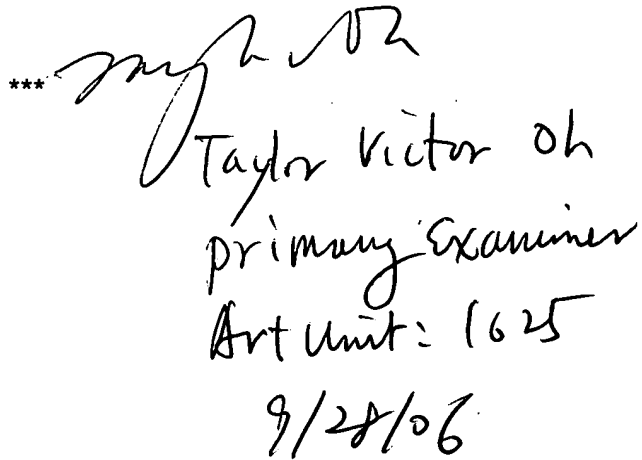 ***
Taylor Victor Oh
primary Examiner
Art Unit: 1625
9/28/06